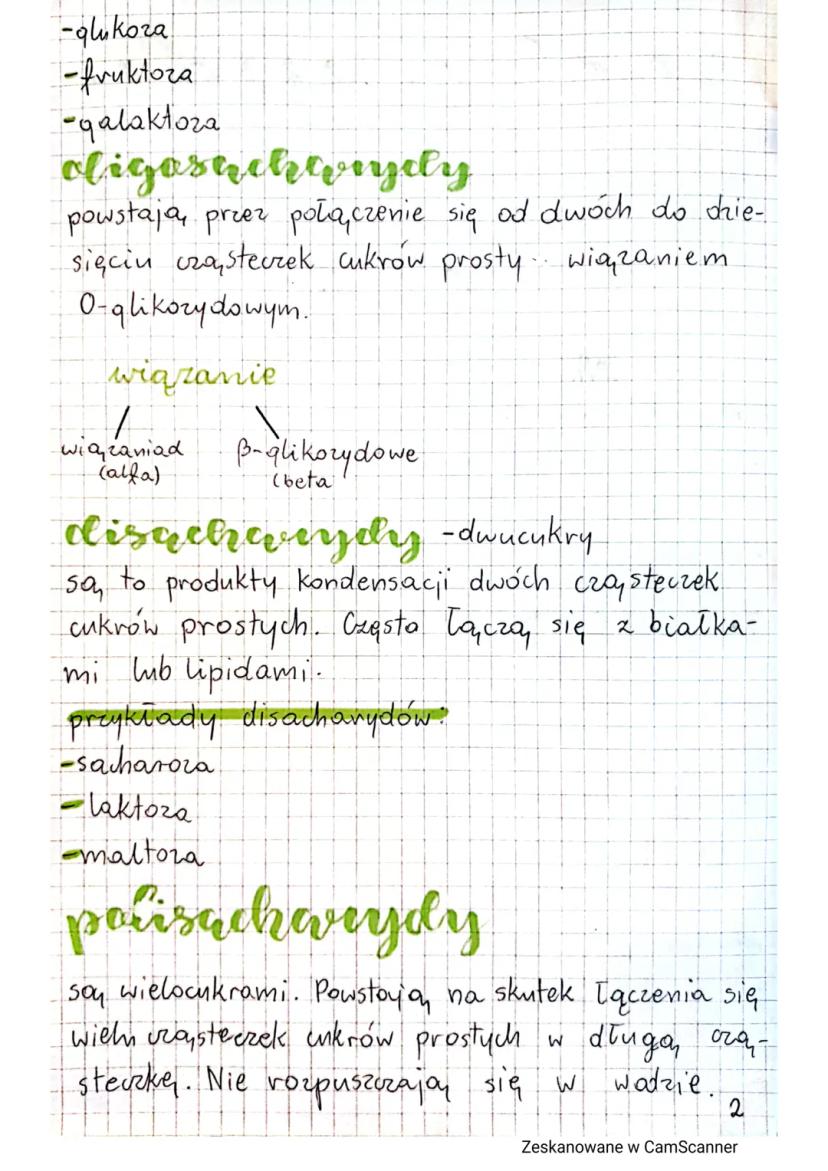 -glukoza
-fruktoza
-galaktoza
oligosacharydy
powstają przez połączenie się od dwóch do dzie-
sięciu cząsteczek cukrów prosty wiązaniem
O-glikozydowym.
wiązanie
wiązania α β-glikozydowe
(alfa) (beta
disacharydy -dwucukry
są to produkty kondensacji dwóch cząsteczek
cukrów prostych. Często łączą się z białka-
mi lub lipidami.
przykłady disacharydów:
-sacharoza
-laktoza
-maltoza
polisacharydy
są wielocukrami. Powstają na skutek łączenia się
wielu cząsteczek cukrów prostych w długą czą-
steczkę. Nie rozpuszczają się w wodzie.
2
Zeskanowane w CamScanner